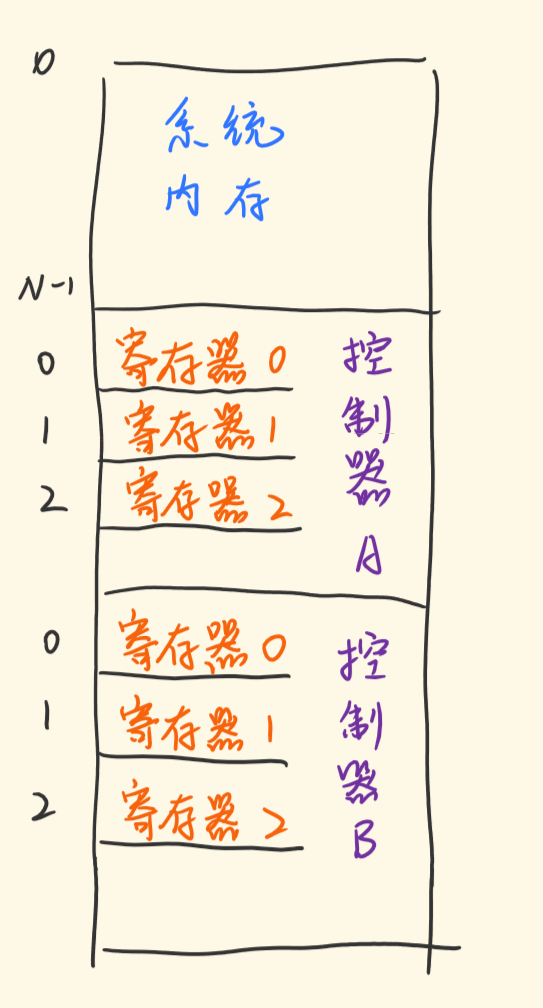 0
系统
内存
N-1
0 寄存器 0
1 寄存器 1
2 寄存器 2
控
制
器
A
0 寄存器 0
1 寄存器 1
2 寄存器 2
控
制
器
B